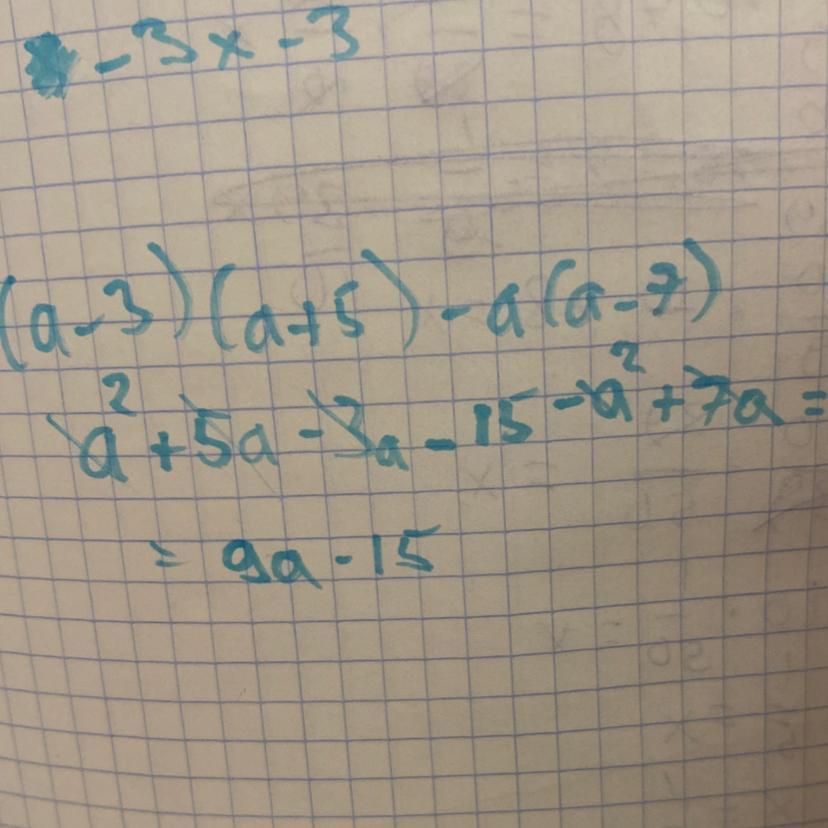 -3x-3
(a-3)(a+5)-a(a-7)
a²+5a-3a-15-a²+7a=
= 9a-15